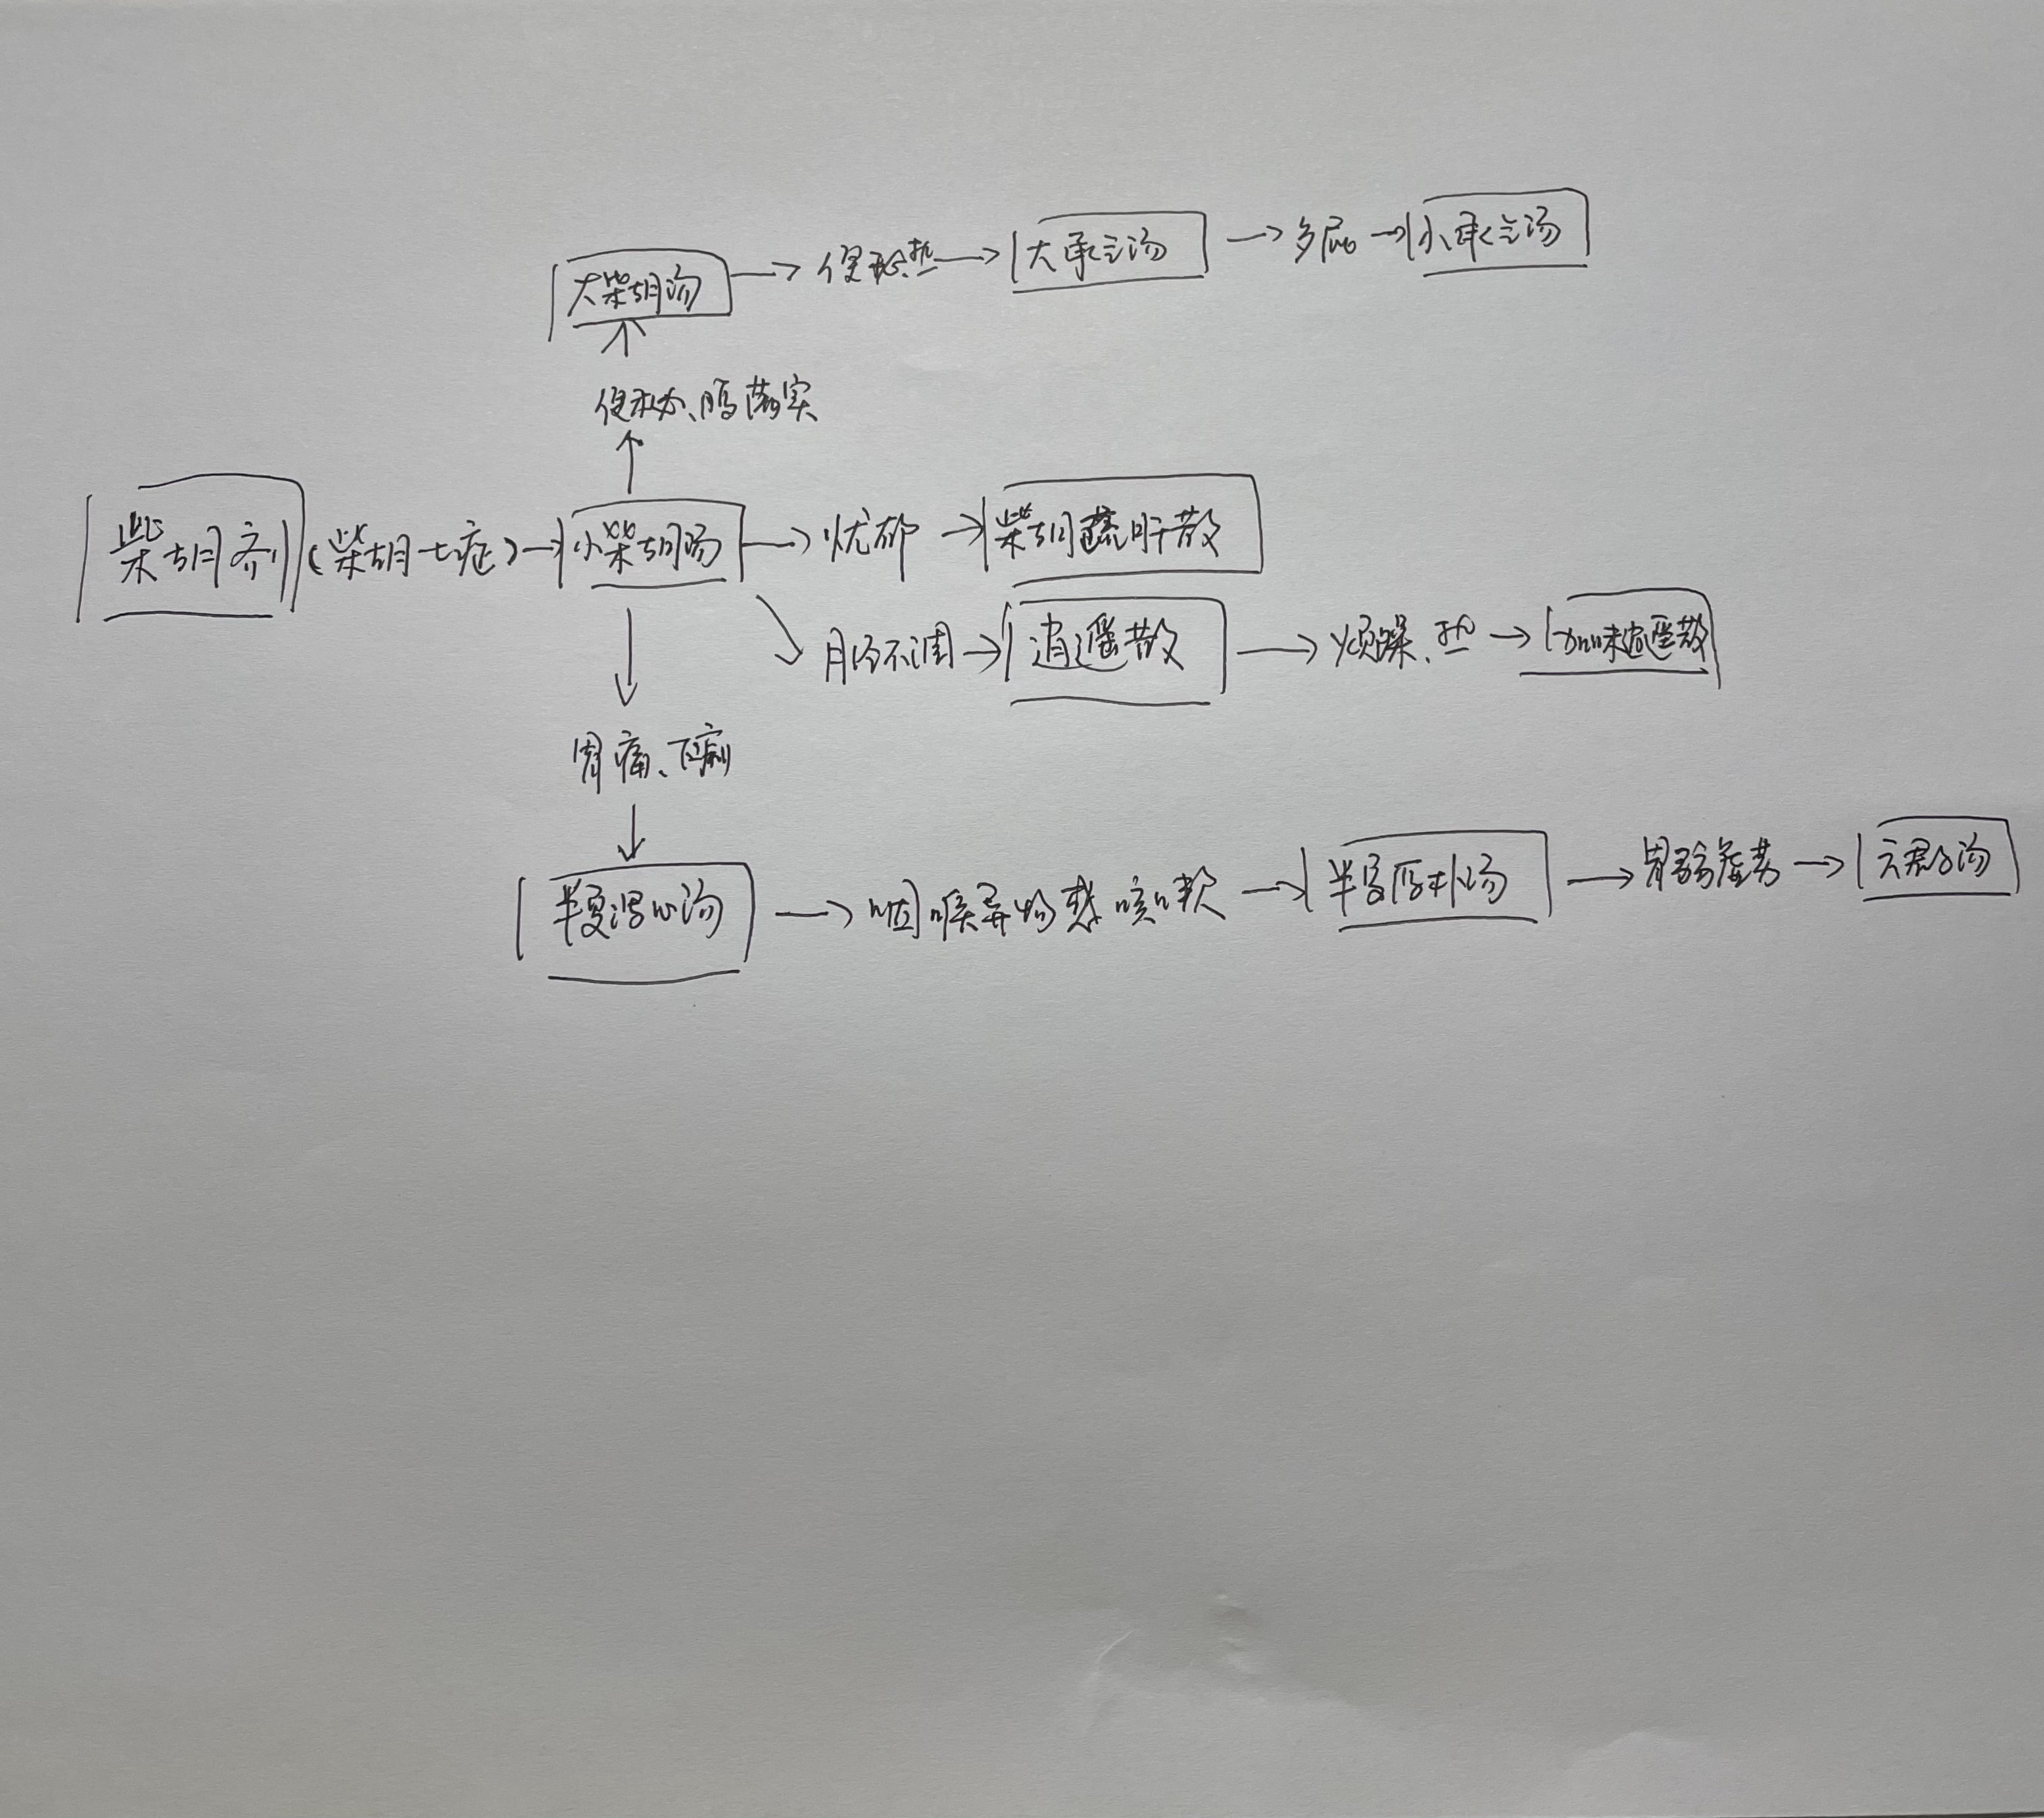 大柴胡汤 → 便秘、热 → 大承气汤 → 多屁 → 小承气汤
便秘、肠燥实
柴胡剂 (柴胡七症) → 小柴胡汤 → 忧郁 → 柴胡疏肝散
月经不调 → 逍遥散 → 烦躁、热 → 加味逍遥散
胃痛、下痢
半夏泻心汤 → 咽喉异物感 咳嗽 → 半夏厚朴汤 → 胃弱虚劳 → 六君子汤